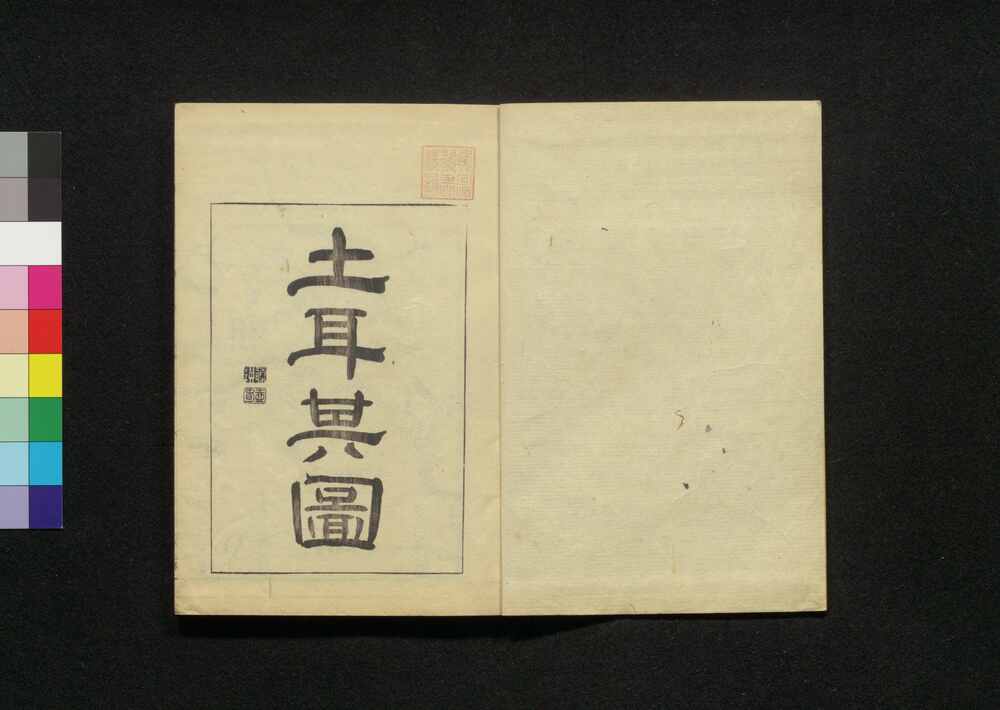 土耳其圖